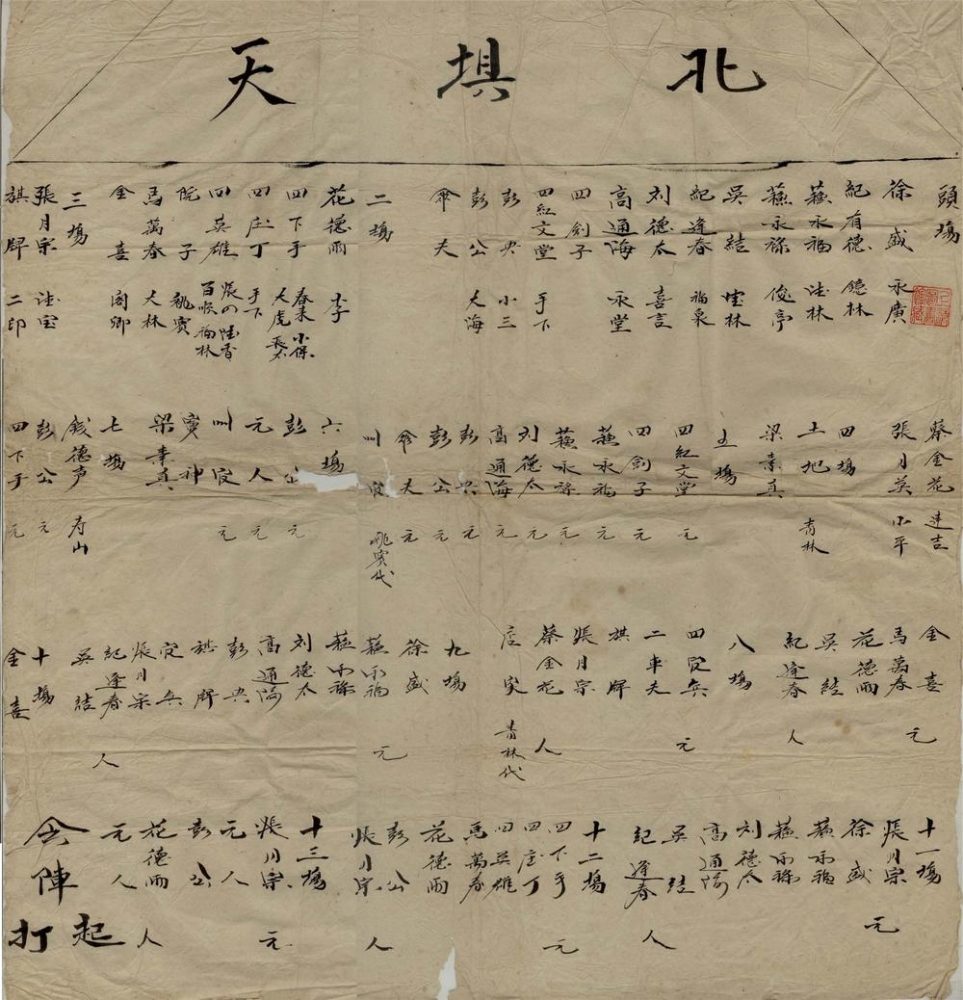 北埧天
頭場
徐盛 永廣
紀有德 德林
蘇永福 法林
蘇永祿 俊亭
吳結
紀逢春 福泉
刘德太 喜言
高通海 永堂
四劊子
四紅文堂 手下
彭兴 小三
彭公 大海
伞夫
二場
花德雨 李子
四下手 春来 小保
四庄丁 手下 大虎 長太
四英雄 張四 百順 福林
院子 姚寳
馬萬春 大林
金喜 阁卿
三場
張月宗 法宝
旗牌 二印
蔡金花 連吉
張月英 小平
四場
土地 青林
梁素真
五場
四紅文堂 元
四劊子 元
蘇永福 元
蘇永祿 元
刘德太 元
高通海 元
彭兴 元
彭公 元
伞夫 元
叫官 姚寳代
六場
彭公 元
元人 元
叫官 元
梦神
梁素真
七場
錢德声 寿山
彭公 元
四下手 元
金喜
馬萬春 元
花德雨
吳結
紀逢春 人
八場
四官兵 元
二車夫
旗牌
張月宗
蔡金花 人
店家 青林代
九場
徐盛 元
蘇永福
蘇永祿
刘德太
高通海
彭兴
旗牌
官兵
張月宗
紀逢春 人
吳結
十場
金喜
十一場
張月宗
徐盛 元
蘇永福
蘇永祿
刘德太
高通海
吳結
紀逢春 人
十二場
四下手 元
四庄丁
四英雄
馬萬春
花德雨
彭公
張月宗 人
十三場
張月宗 元
元人
彭公
花德雨 人
元人
会陣
起打